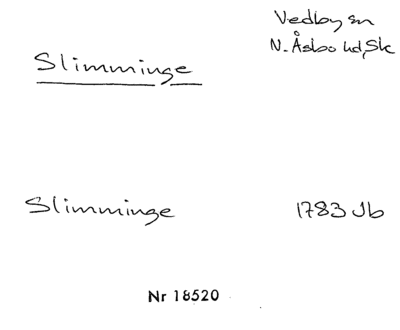 Vedby sn
N. Åsbo hd, Sk
Slimminge
Slimminge 1783 Jb
Nr 18520